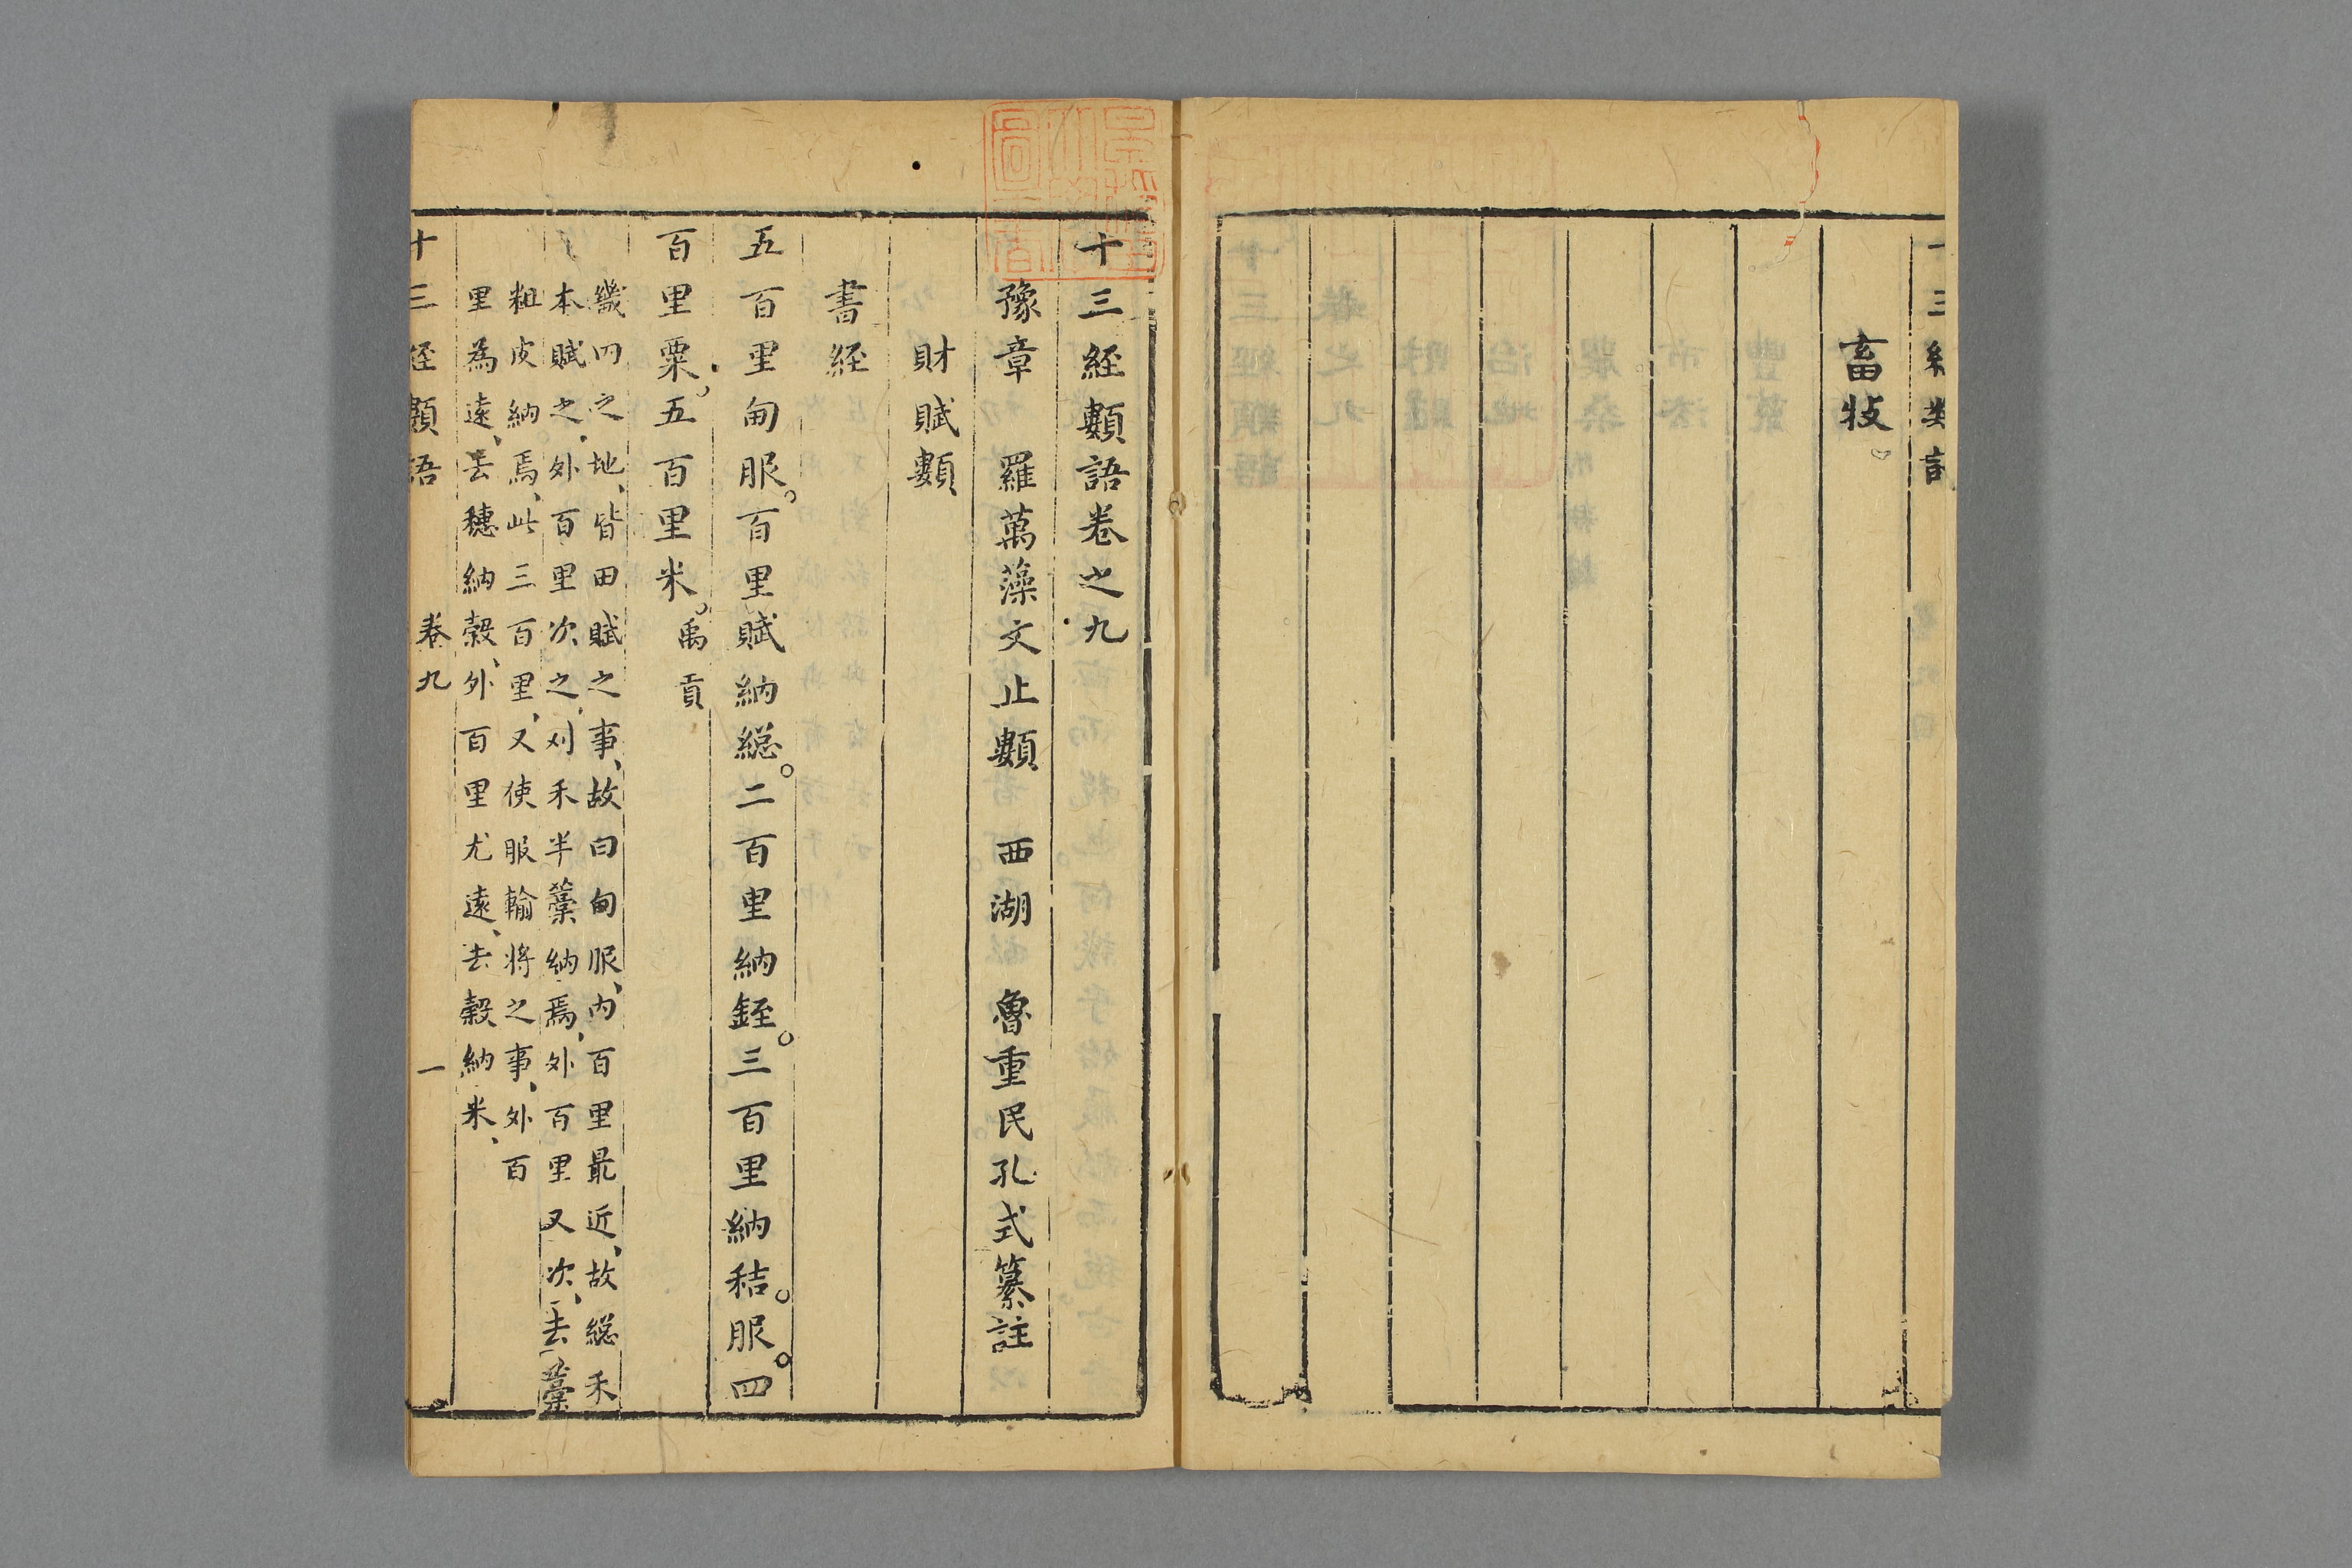 畜牧
十三經類語卷之九
豫章　羅萬藻文止類　西湖　魯重民孔式纂註
財賦類
書經
五百里甸服。百里賦納総。二百里納銍。三百里納秸。服。四
百里粟。五百里米。禹貢
畿内之地、皆田賦之事、故曰甸服、内百里最近、故総禾
本賦之、外百里次之、刈禾半藁納焉、外百里又次、去藁
粗皮納焉、此三百里、又使服輸將之事、外百
里為遠、去穗納穀、外百里尤遠、去穀納米、
十三経類語　卷九　一